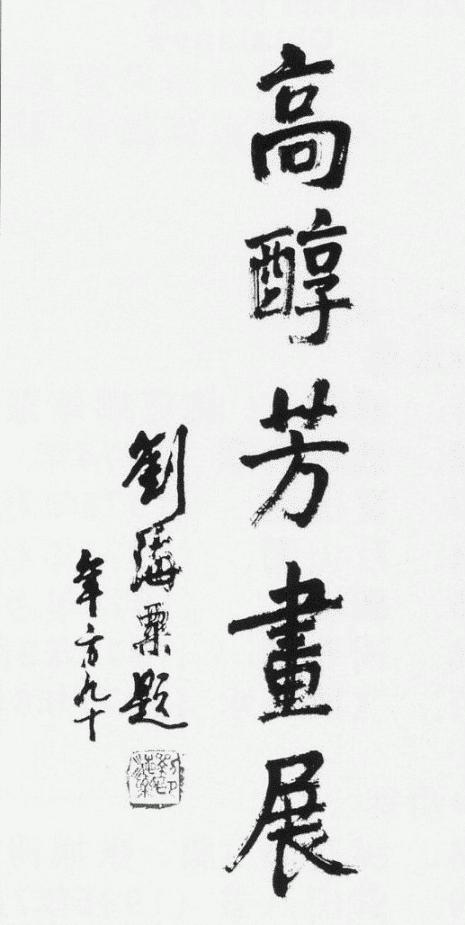 高醇芳畫展
劉海粟題
年方九十